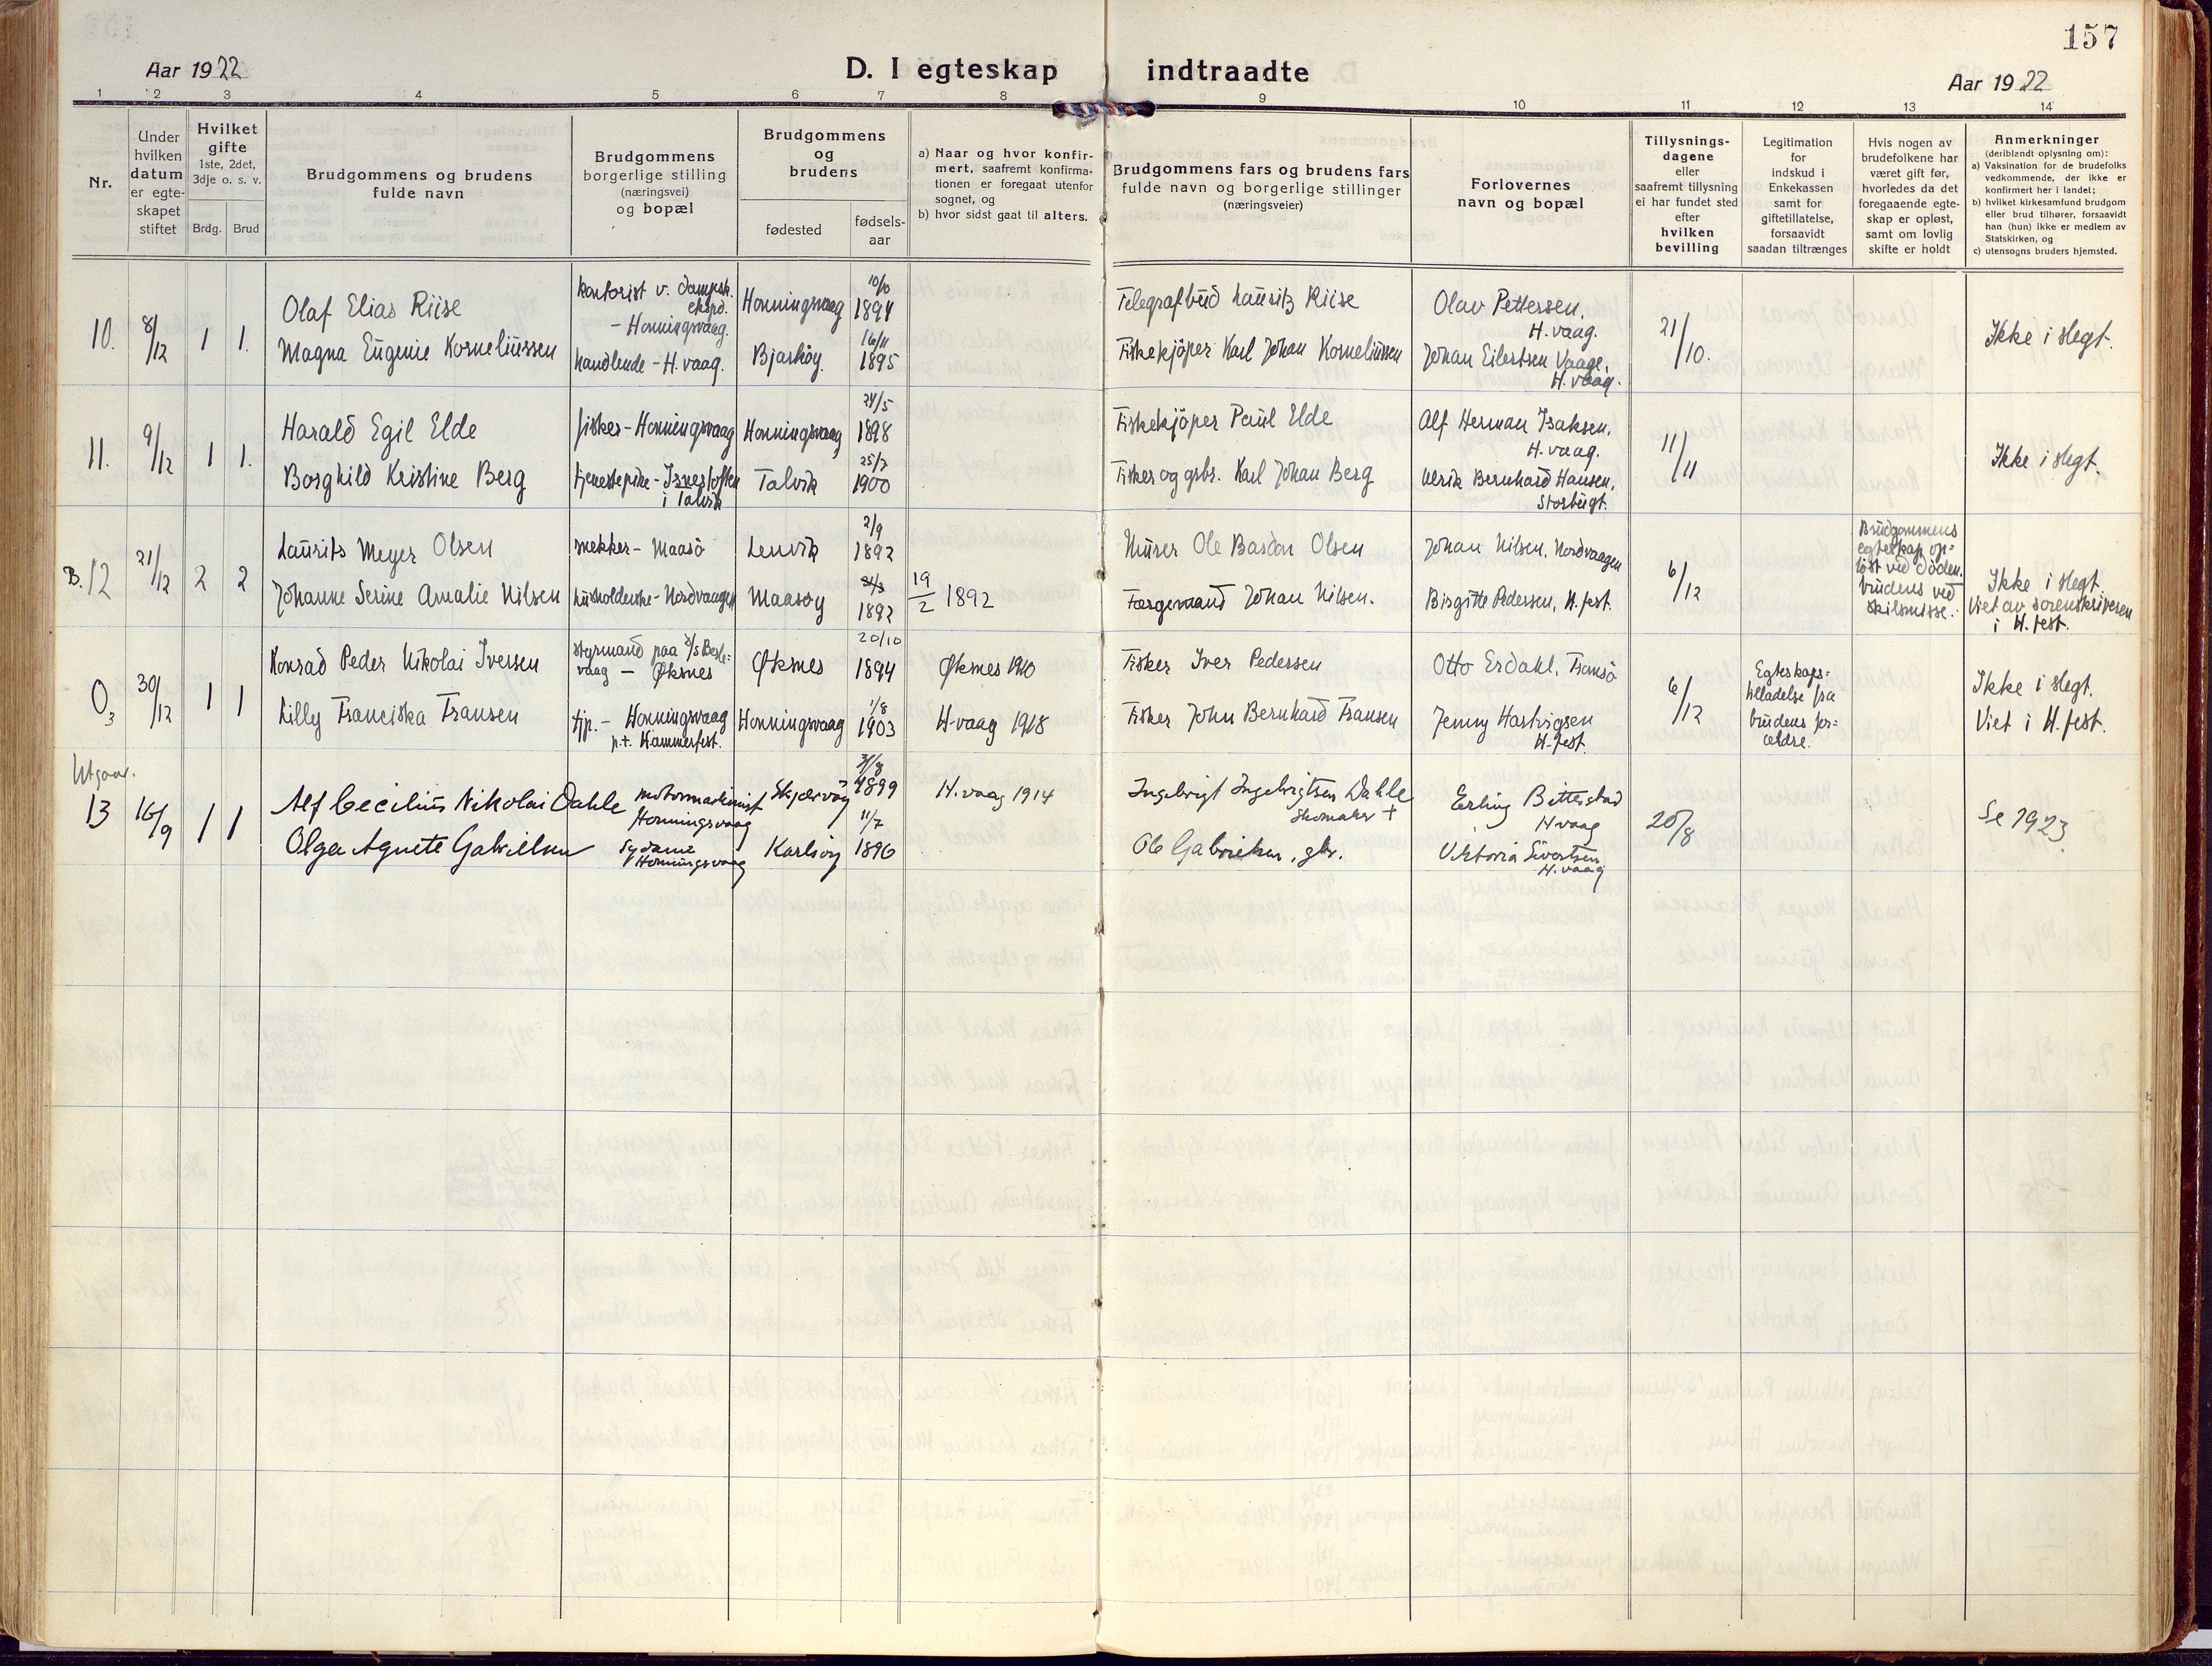 157
Aar 1922
D. I egteskap indtraadte
Aar 1922
1 2 3 4 5 6 7 8 9 10 11 12 13 14
Nr.
Under hvilken datum er egteskapet stiftet
Hvilket gifte
1ste, 2det, 3dje o. s. v.
Brdg. Brud
Brudgommens og brudens fulde navn
Brudgommens borgerlige stilling (næringsvei) og bopæl
Brudgommens og brudens
fødested
fødsels-aar
a) Naar og hvor konfirmert, saafremt konfirmationen er foregaat utenfor sognet, og
b) hvor sidst gaat til alters.
Brudgommens fars og brudens fars fulde navn og borgerlige stillinger (næringsveier)
Forlovernes navn og bopæl
Tillysningsdagene eller saafremt tillysning ei har fundet sted efter hvilken bevilling
Legitimation for indskud i Enkekassen samt for giftetillatelse, forsaavidt saadan tiltrænges
Hvis nogen av brudefolkene har været gift før, hvorledes da det foregaaende egteskap er opløst, samt om lovlig skifte er holdt
Anmerkninger
(deriblandt oplysning om):
a) Vaksination for de brudefolks vedkommende, der ikke er konfirmert her i landet;
b) hvilket kirkesamfund brudgom eller brud tilhører, forsaavidt han (hun) ikke er medlem av Statskirken, og
c) utensogns bruders hjemsted.
10. 8/12 1 1.
Olaf Elias Riise
kontorist v. dampsk. ekspd. - Honningsvaag.
Honningsvaag
1894
Telegrafbud Lauritz Riise
Olav Pettersen, H.vaag.
Magna Eugenie Korneliussen
handlende - H.vaag.
Bjarköy.
16/11 1895
Fiskekjöper Karl Johan Korneliussen
Johan Eilertsen Vaage, H.vaag.
21/10.
Ikke i slegt.
11. 9/12 1 1.
Harald Egil Elde
fisker - Honningsvaag
Honningsvaag
24/5 1898
Fiskekjöper Paul Elde
Alf Herman Isaksen, H.vaag.
Borghild Kristine Berg
tjenestepike - Isnestoften i Talvik
Talvik
25/7 1900
Fisker og gsbr. Karl Johan Berg
Ulrik Bernhard Hansen, Storbugt.
11/11
Ikke i slegt.
B. 12 21/12 2 2
Laurits Meyer Olsen
mekker - Maasö
Lenvik
2/9 1892
Murer Ole Bardon Olsen
Johan Nilsen, Nordvaagen
Johanne Serine Amalie Nilsen
husholderske - Nordvaagen
Maasøy
1892
19/2 1892
Færgemand Johan Nilsen.
Birgitte Pedersen, H.fest.
6/12
Brudgommens egteskap opløst ved döden. brudens ved skilsmisse.
Ikke i slegt. Viet av sorenskriveren i H.fest.
O3 30/12 1 1
Konrad Peder Nikolai Iversen
styrmand paa - Øksnes
Øksnes
20/10 1894
Øksnes 1910
Fisker Iver Pedersen
Otto Erdahl, Tromsö
Lilly Franciska Fransen
tjp. - Honningsvaag p.t. Hammerfest.
Honningsvaag
1/8 1903
H.vaag 1918
Fisker John Bernhard Fransen
Jenny Hartvigsen H.fest
6/12
Egteskapstilladelse fra brudens forældre.
Ikke i slegt. Viet i H.fest.
Utgaar.
13 16/9 1 1
Alf Cecilius Nikolai Dahle
motormaskinist Honningsvaag
Skjærvøy
1899
H.vaag 1914
Ingebrigt Ingebrigtsen Dahle Skomaker +
Erling Betterstad H vaag
Olga Agnete Gabrielsen
Sydame Honningsvaag
Karlsøy
11/7 1896
Ole Gabrielsen, gbr.
Viktoria Sivertsen H.vaag
20/8
Se 1923